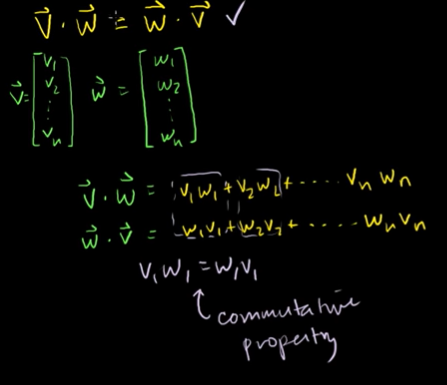 v⃗ · w⃗ = w⃗ · v⃗ ✓
v⃗ = [v₁ v₂ ⋮ vₙ] w⃗ = [w₁ w₂ ⋮ wₙ]
v⃗ · w⃗ = v₁w₁ + v₂w₂ + ····· vₙwₙ
w⃗ · v⃗ = w₁v₁ + w₂v₂ + ····· wₙvₙ
v₁w₁ = w₁v₁
commutative
property